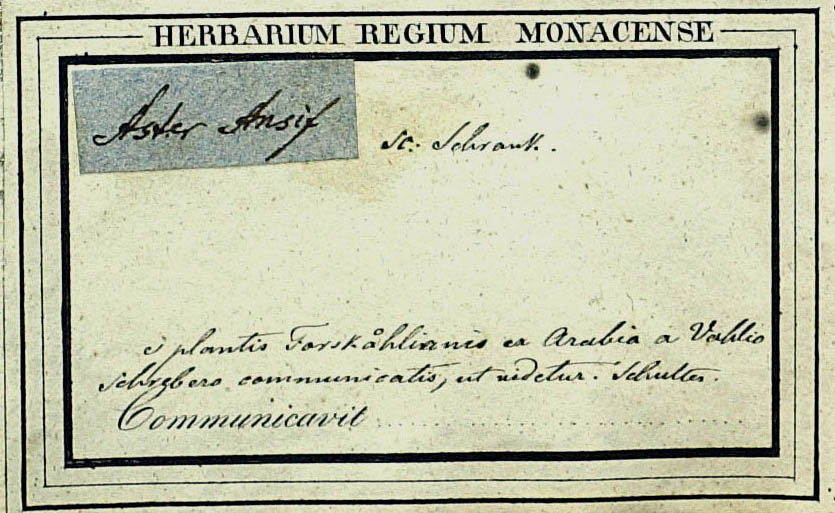 HERBARIUM REGIUM MONACENSE
Aster Ansif
sc: Schrank.
e plantis Forskåhlianis ex Arabia a Vahlio
Schrebero communicatis, ut videtur. Schultes.
Communicavit